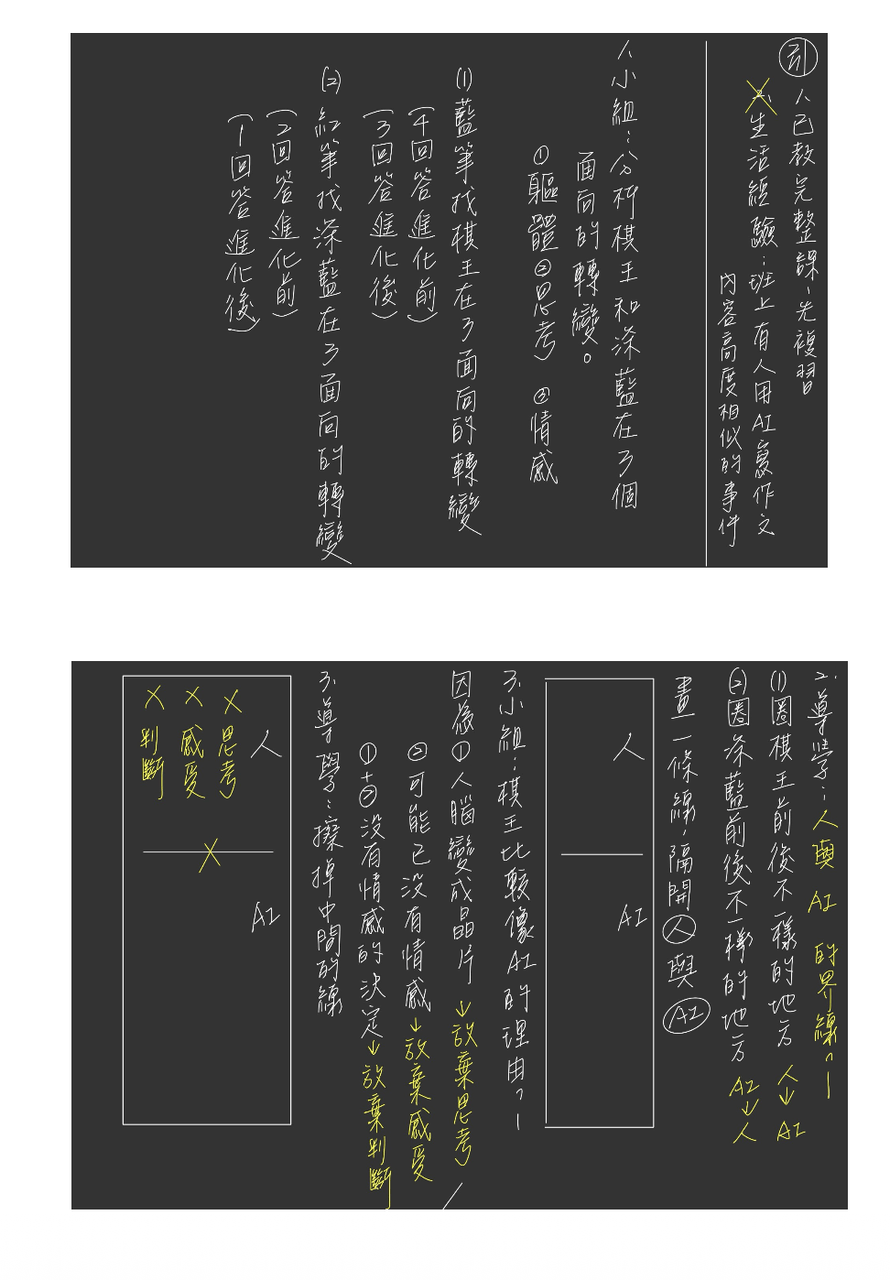 引
1、已教完整課,先複習
2、生活經驗:班上有人用AI寫作文
內容高度相似的事件
1、小組:分析棋王和深藍在3個
面向的轉變。
①軀體②思考 ③情感
(1)藍筆找棋王在3面向的轉變
(4回答進化前)
(3回答進化後)
(2)紅筆找深藍在3面向的轉變
(2回答進化前)
(1回答進化後)
2、導學:人與AI的界線?—
(1)圈棋王前後不一樣的地方 人→AI
(2)圈深藍前後不一樣的地方 AI→人
畫一條線,隔開人與AI
人
AI
3、小組:棋王比較像AI的理由?—
因為①人腦變成晶片→放棄思考
②可能已沒有情感→放棄感受
①+②沒有情感的決定→放棄判斷
3、導學:擦掉中間的線
人
AI
X思考
X感受
X判斷
X